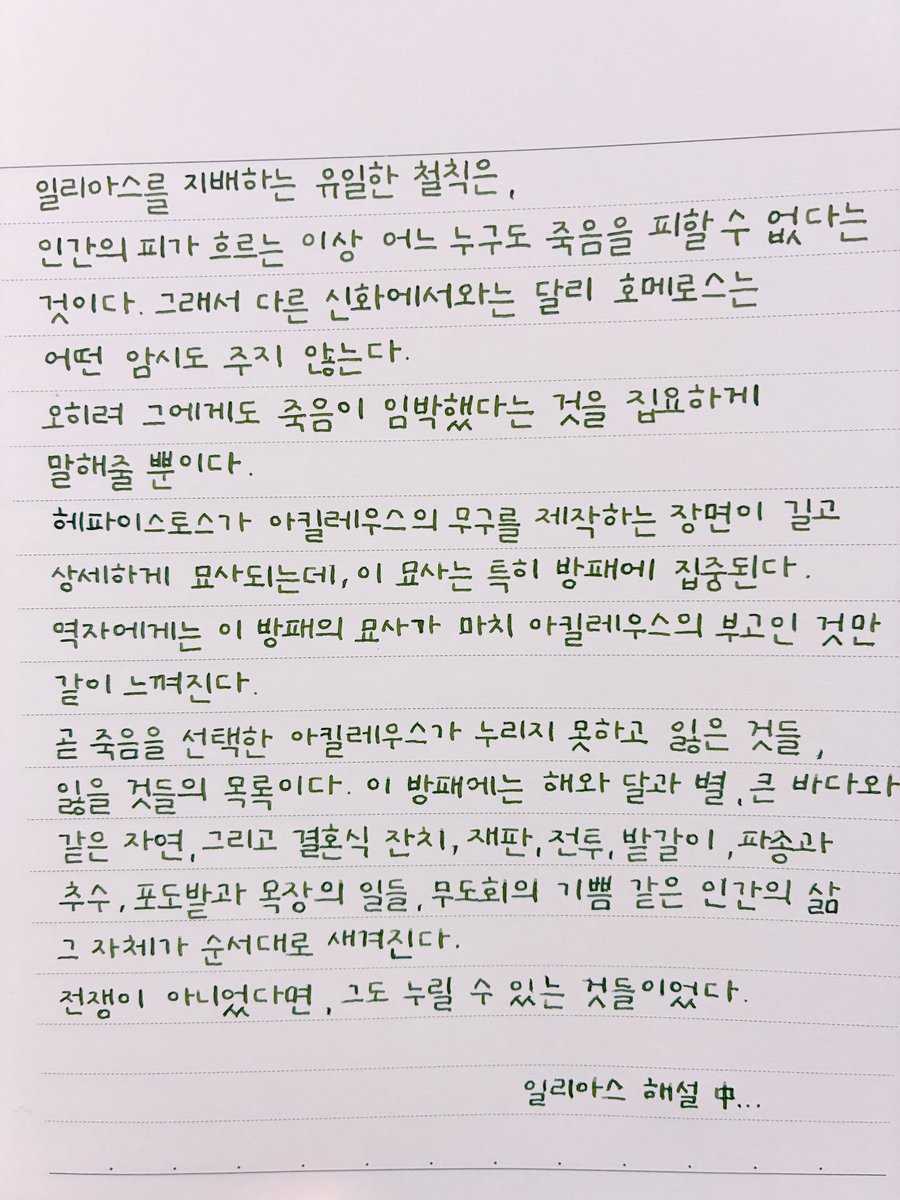 일리아스를 지배하는 유일한 철칙은,
인간의 피가 흐르는 이상 어느 누구도 죽음을 피할 수 없다는
것이다. 그래서 다른 신화에서와는 달리 호메로스는
어떤 암시도 주지 않는다.
오히려 그에게도 죽음이 임박했다는 것을 집요하게
말해줄 뿐이다.
헤파이스토스가 아킬레우스의 무구를 제작하는 장면이 길고
상세하게 묘사되는데, 이 묘사는 특히 방패에 집중된다.
역자에게는 이 방패의 묘사가 마치 아킬레우스의 부고인 것만
같이 느껴진다.
곧 죽음을 선택한 아킬레우스가 누리지 못하고 잃은 것들,
잃을 것들의 목록이다. 이 방패에는 해와 달과 별, 큰 바다와
같은 자연, 그리고 결혼식 잔치, 재판, 전투, 밭갈이, 파종과
추수, 포도밭과 목장의 일들, 무도회의 기쁨 같은 인간의 삶
그 자체가 순서대로 새겨진다.
전쟁이 아니었다면, 그도 누릴 수 있는 것들이었다.
일리아스 해설 中...